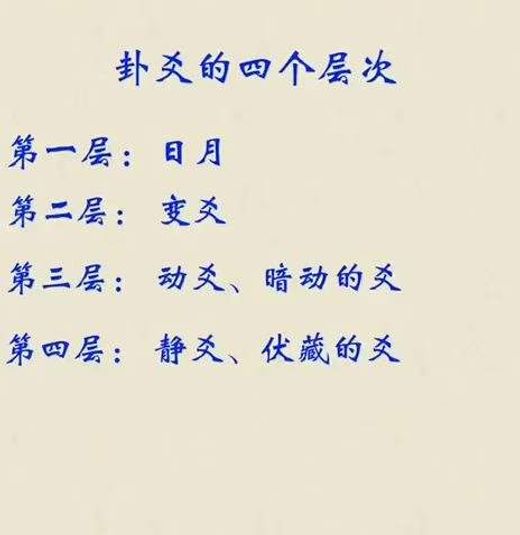 卦爻的四个层次
第一层：日月
第二层：变爻
第三层：动爻、暗动的爻
第四层：静爻、伏藏的爻